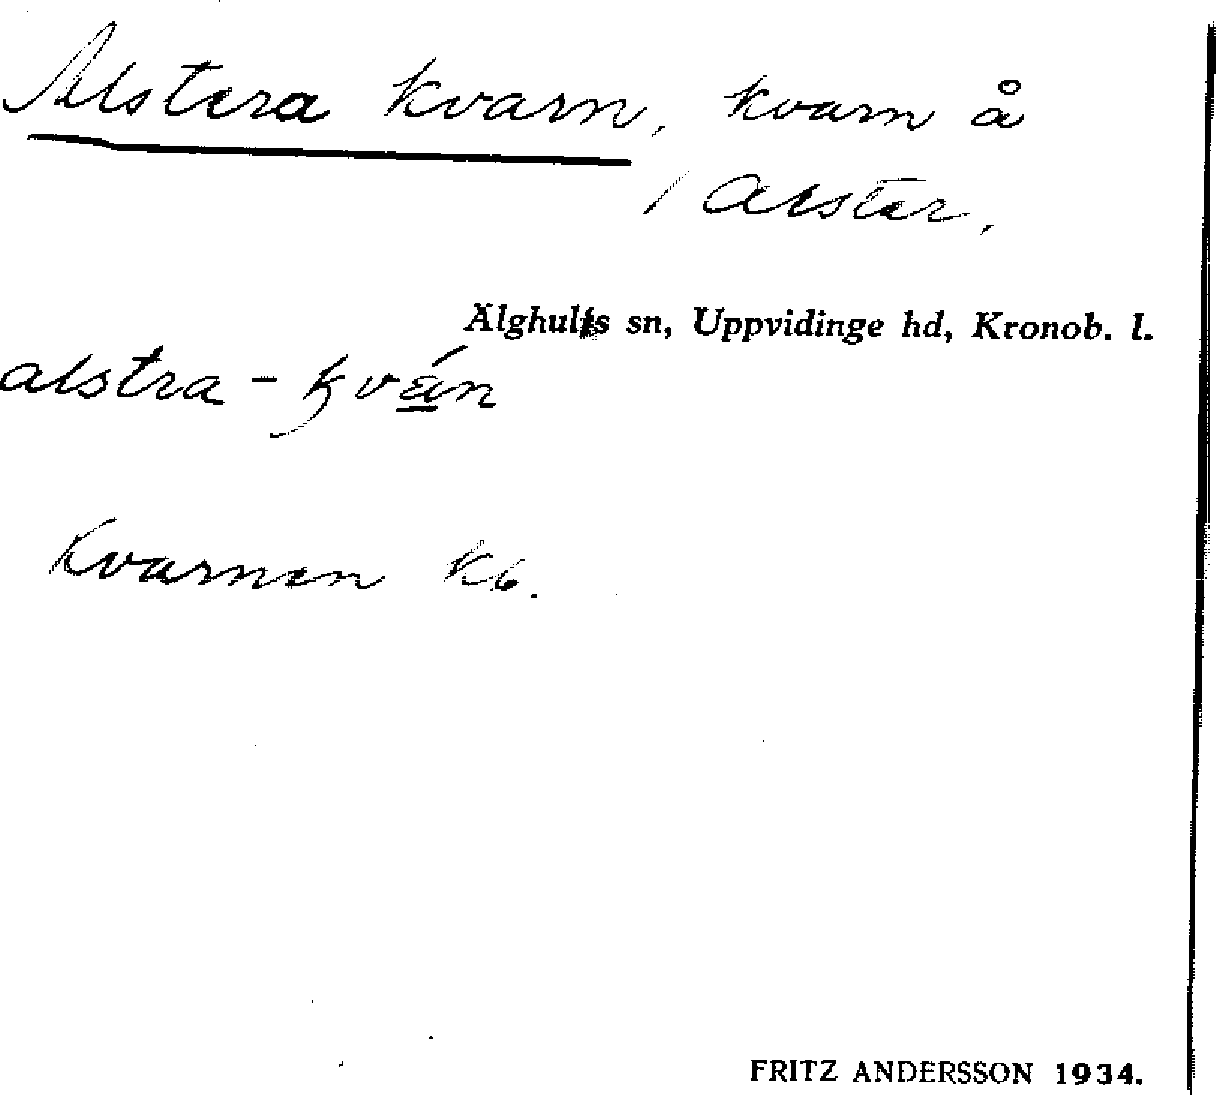 Alstera kvarn, kvarn å
/ Alster,
Älghults sn, Uppvidinge hd, Kronob. l.
alstra-kván
Kvarnen kb.
FRITZ ANDERSSON 1934.